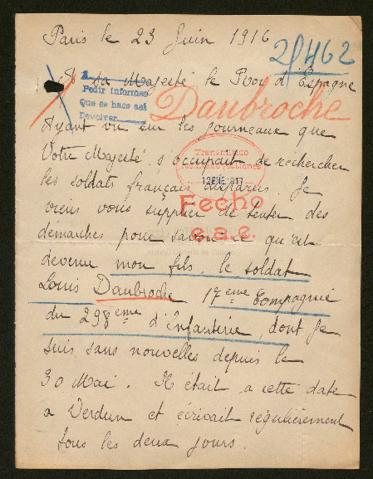 Paris le 23 Juin 1916
28462
A sa Majesté le Roi d'Espagne
Pedir informes
Que se hace así
Devolver
Daubroche
Ayant vu sur les journeaux que
Votre Majesté s'occupait de rechercher
les soldats français disparus. Je
viens vous supplier de tenter des
demarches pour savoir ce qu'est
devenu mon fils. le soldat
Louis Daubroche 17eme Compagnie
du 298eme d'Infanterie dont je
suis sans nouvelles depuis le
30 Mai. Il était a cette date
a Verdun et écrivait régulièrement
tous les deux jours.
Fecho
e.a.c.